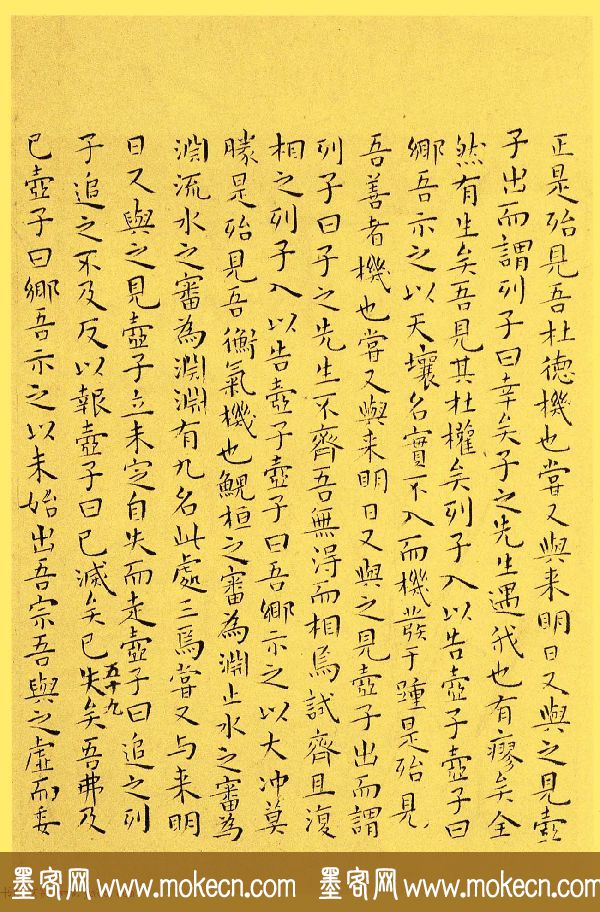 正是殆見吾杜德機也嘗又與来明日又與之見壺
子出而謂列子曰幸矣子之先生遇我也有瘳矣全
然有生矣吾見其杜權矣列子入以告壺子壺子曰
鄉吾示之以天壤名實不入而機發于踵是殆見
吾善者機也嘗又與来明日又與之見壺子出而謂
列子曰子之先生不齊吾無淂而相焉試齊且復
相之列子入以告壺子壺子曰吾鄉示之以大冲莫
勝是殆見吾衡氣機也鯢桓之審為淵止水之審為
淵流水之審為淵淵有九名此處三焉嘗又与来明
日又與之見壺子立未定自失而走壺子曰追之列
子追之不及反以報壺子曰已滅矣已失矣吾弗及
五十九
已壺子曰鄉吾示之以未始出吾宗吾與之虛而委
墨客网 www.mokecn.com 墨客网 www.mokecn.com